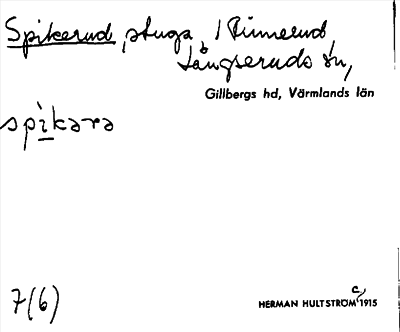 Spikerud, stuga, / Rimerud,
Långseruds sn,
Gillbergs hd, Värmlands län
spi̲kara
7(6)
HERMAN HULTSTRÖM c, 1915